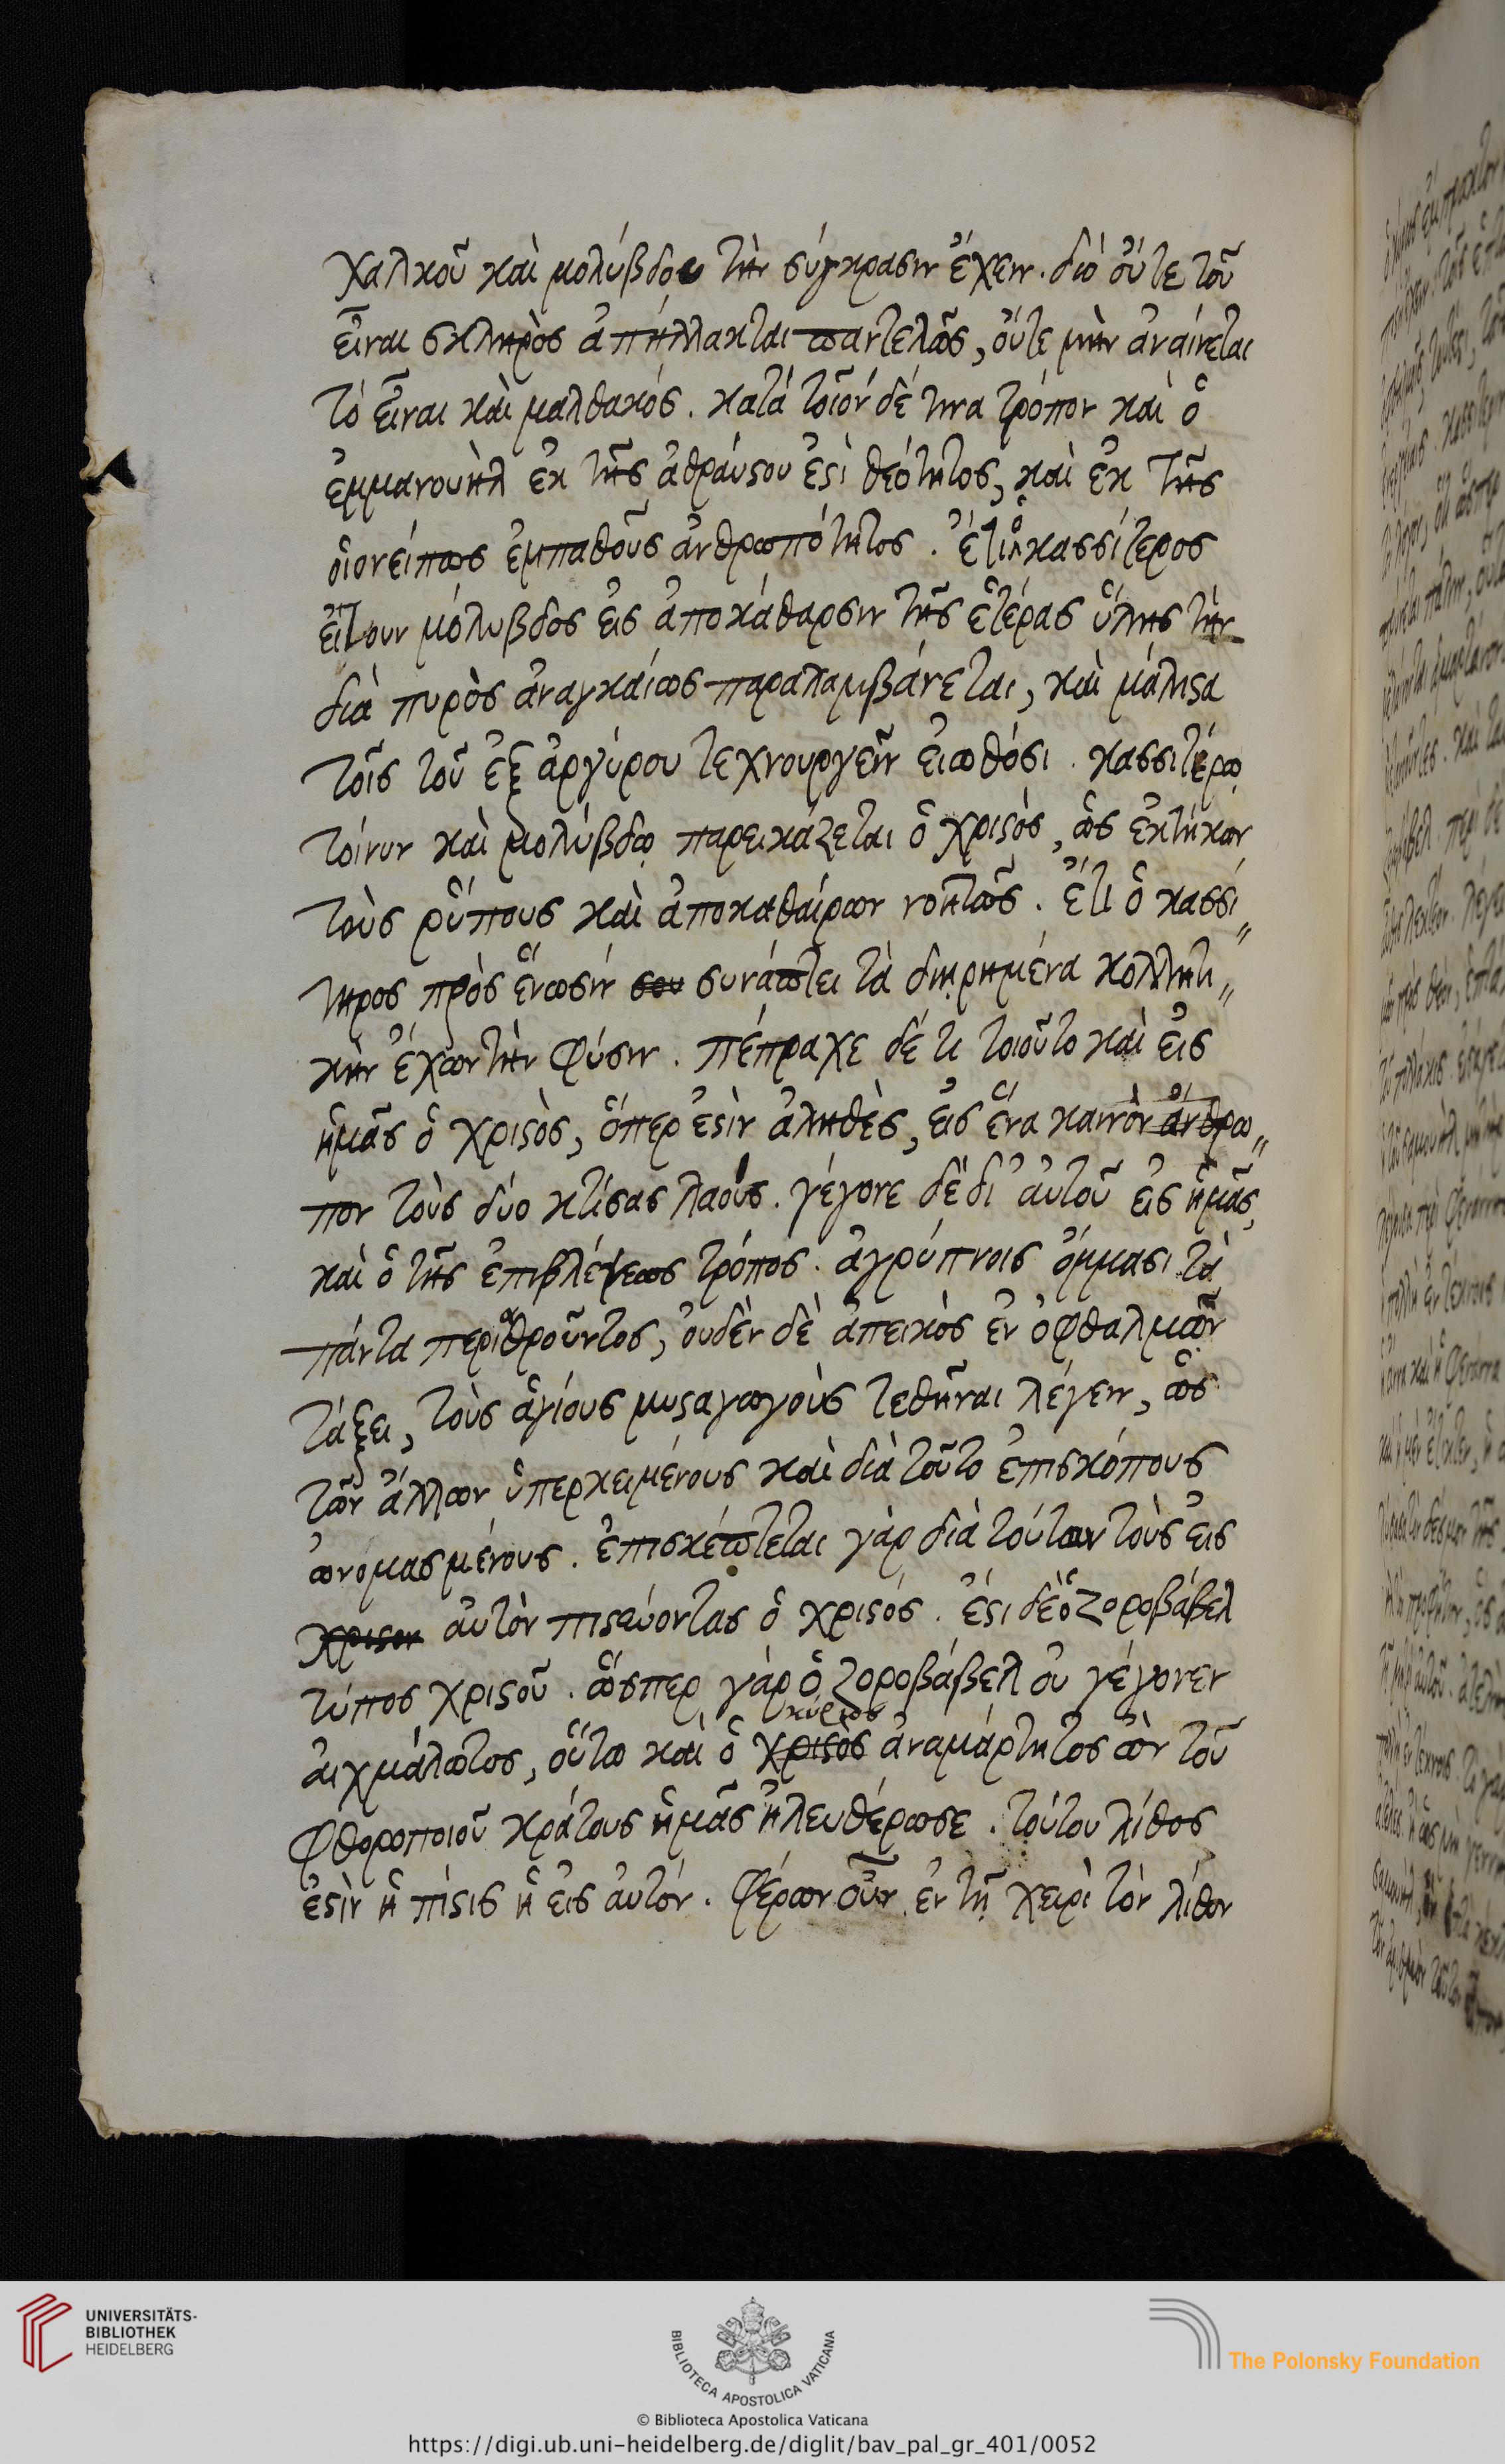 χαλκοῦ καὶ μολύβδου τὴν σύγκρασιν ἔχειν. διὸ οὔτε τοῦ
εἶναι σκληρὸς ἀπήλλακται παντελῶς, οὔτε μὴν ἀναίνεται
τὸ εἶναι καὶ μαλθακός. κατὰ τοῖόν δέ τινα τρόπον καὶ ὁ
ἐμμανουὴλ ἐκ τῆς ἀθραύστου ἐστὶ θεότητος, καὶ ἐκ τῆς
οἱονείπως ἐμπαθοῦς ἀνθρωπότητος. ἔτι ὁ κασσίτερος
εἴτουν μόλυβδος εἰς ἀποκάθαρσιν τῆς ἑτέρας ὕλης τὴν
διὰ πυρὸς ἀναγκαίως παραλαμβάνεται, καὶ μάλιστα
τοῖς τοῦ ἐξ ἀργύρου τεχνουργεῖν εἰωθόσι. κασσιτέρῳ
τοίνυν καὶ μολύβδῳ παρεικάζεται ὁ χριστὸς, ὡς ἐκτήκων
τοὺς ῥύπους καὶ ἀποκαθαίρων νοητῶς. ἔτι ὁ κασσί〃
τηρος πρὸς ἕνωσιν σου συνάπτει τὰ διῃρημένα κολλητι〃
κὴν ἔχων τὴν φύσιν. πέπραχε δέ τι τοιοῦτο καὶ εἰς
ἡμᾶς ὁ χριστὸς, ὅπερ ἐστὶν ἀληθὲς, εἰς ἕνα καινὸν ἄνθρω〃
πον τοὺς δύο κτίσας λαούς. γέγονε δὲ δι' αὐτοῦ εἰς ἡμᾶς,
καὶ ὁ τῆς ἐπιβλέψεως τρόπος. ἀγρύπνοις ὄμμασι τὰ
πάντα περιαθροῦντος, οὐδὲν δὲ ἀπεικὸς ἐν ὀφθαλμῶν
τάξει, τοὺς ἁγίους μυσταγωγοὺς τεθῆναι λέγειν, ὡς
τῶν ἄλλων ὑπερκειμένους καὶ διὰ τοῦτο ἐπισκόπους
ὠνομασμένους. ἐπισκέπτεται γὰρ διὰ τούτων τοὺς εἰς
χριστον αὐτὸν πιστεύοντας ὁ χριστός. ἔστι δὲ ὁ ζοροβάβελ
τύπος χριστοῦ. ὥσπερ γὰρ ὁ ζοροβάβελ οὐ γέγονεν
κύριος
αἰχμάλωτος, οὕτω καὶ ὁ χριστὸς ἀναμάρτητος ὢν τοῦ
φθοροποιοῦ κράτους ἡμᾶς ἠλευθέρωσε. τούτου λίθος
ἐστὶν ἡ πίστις ἡ εἰς αὐτόν. φέρων οὖν ἐν τῇ χειρὶ τὸν λίθον
UNIVERSITÄTS-
BIBLIOTHEK
HEIDELBERG
BIBLIOTECA APOSTOLICA VATICANA
The Polonsky Foundation
© Biblioteca Apostolica Vaticana
https://digi.ub.uni-heidelberg.de/diglit/bav_pal_gr_401/0052